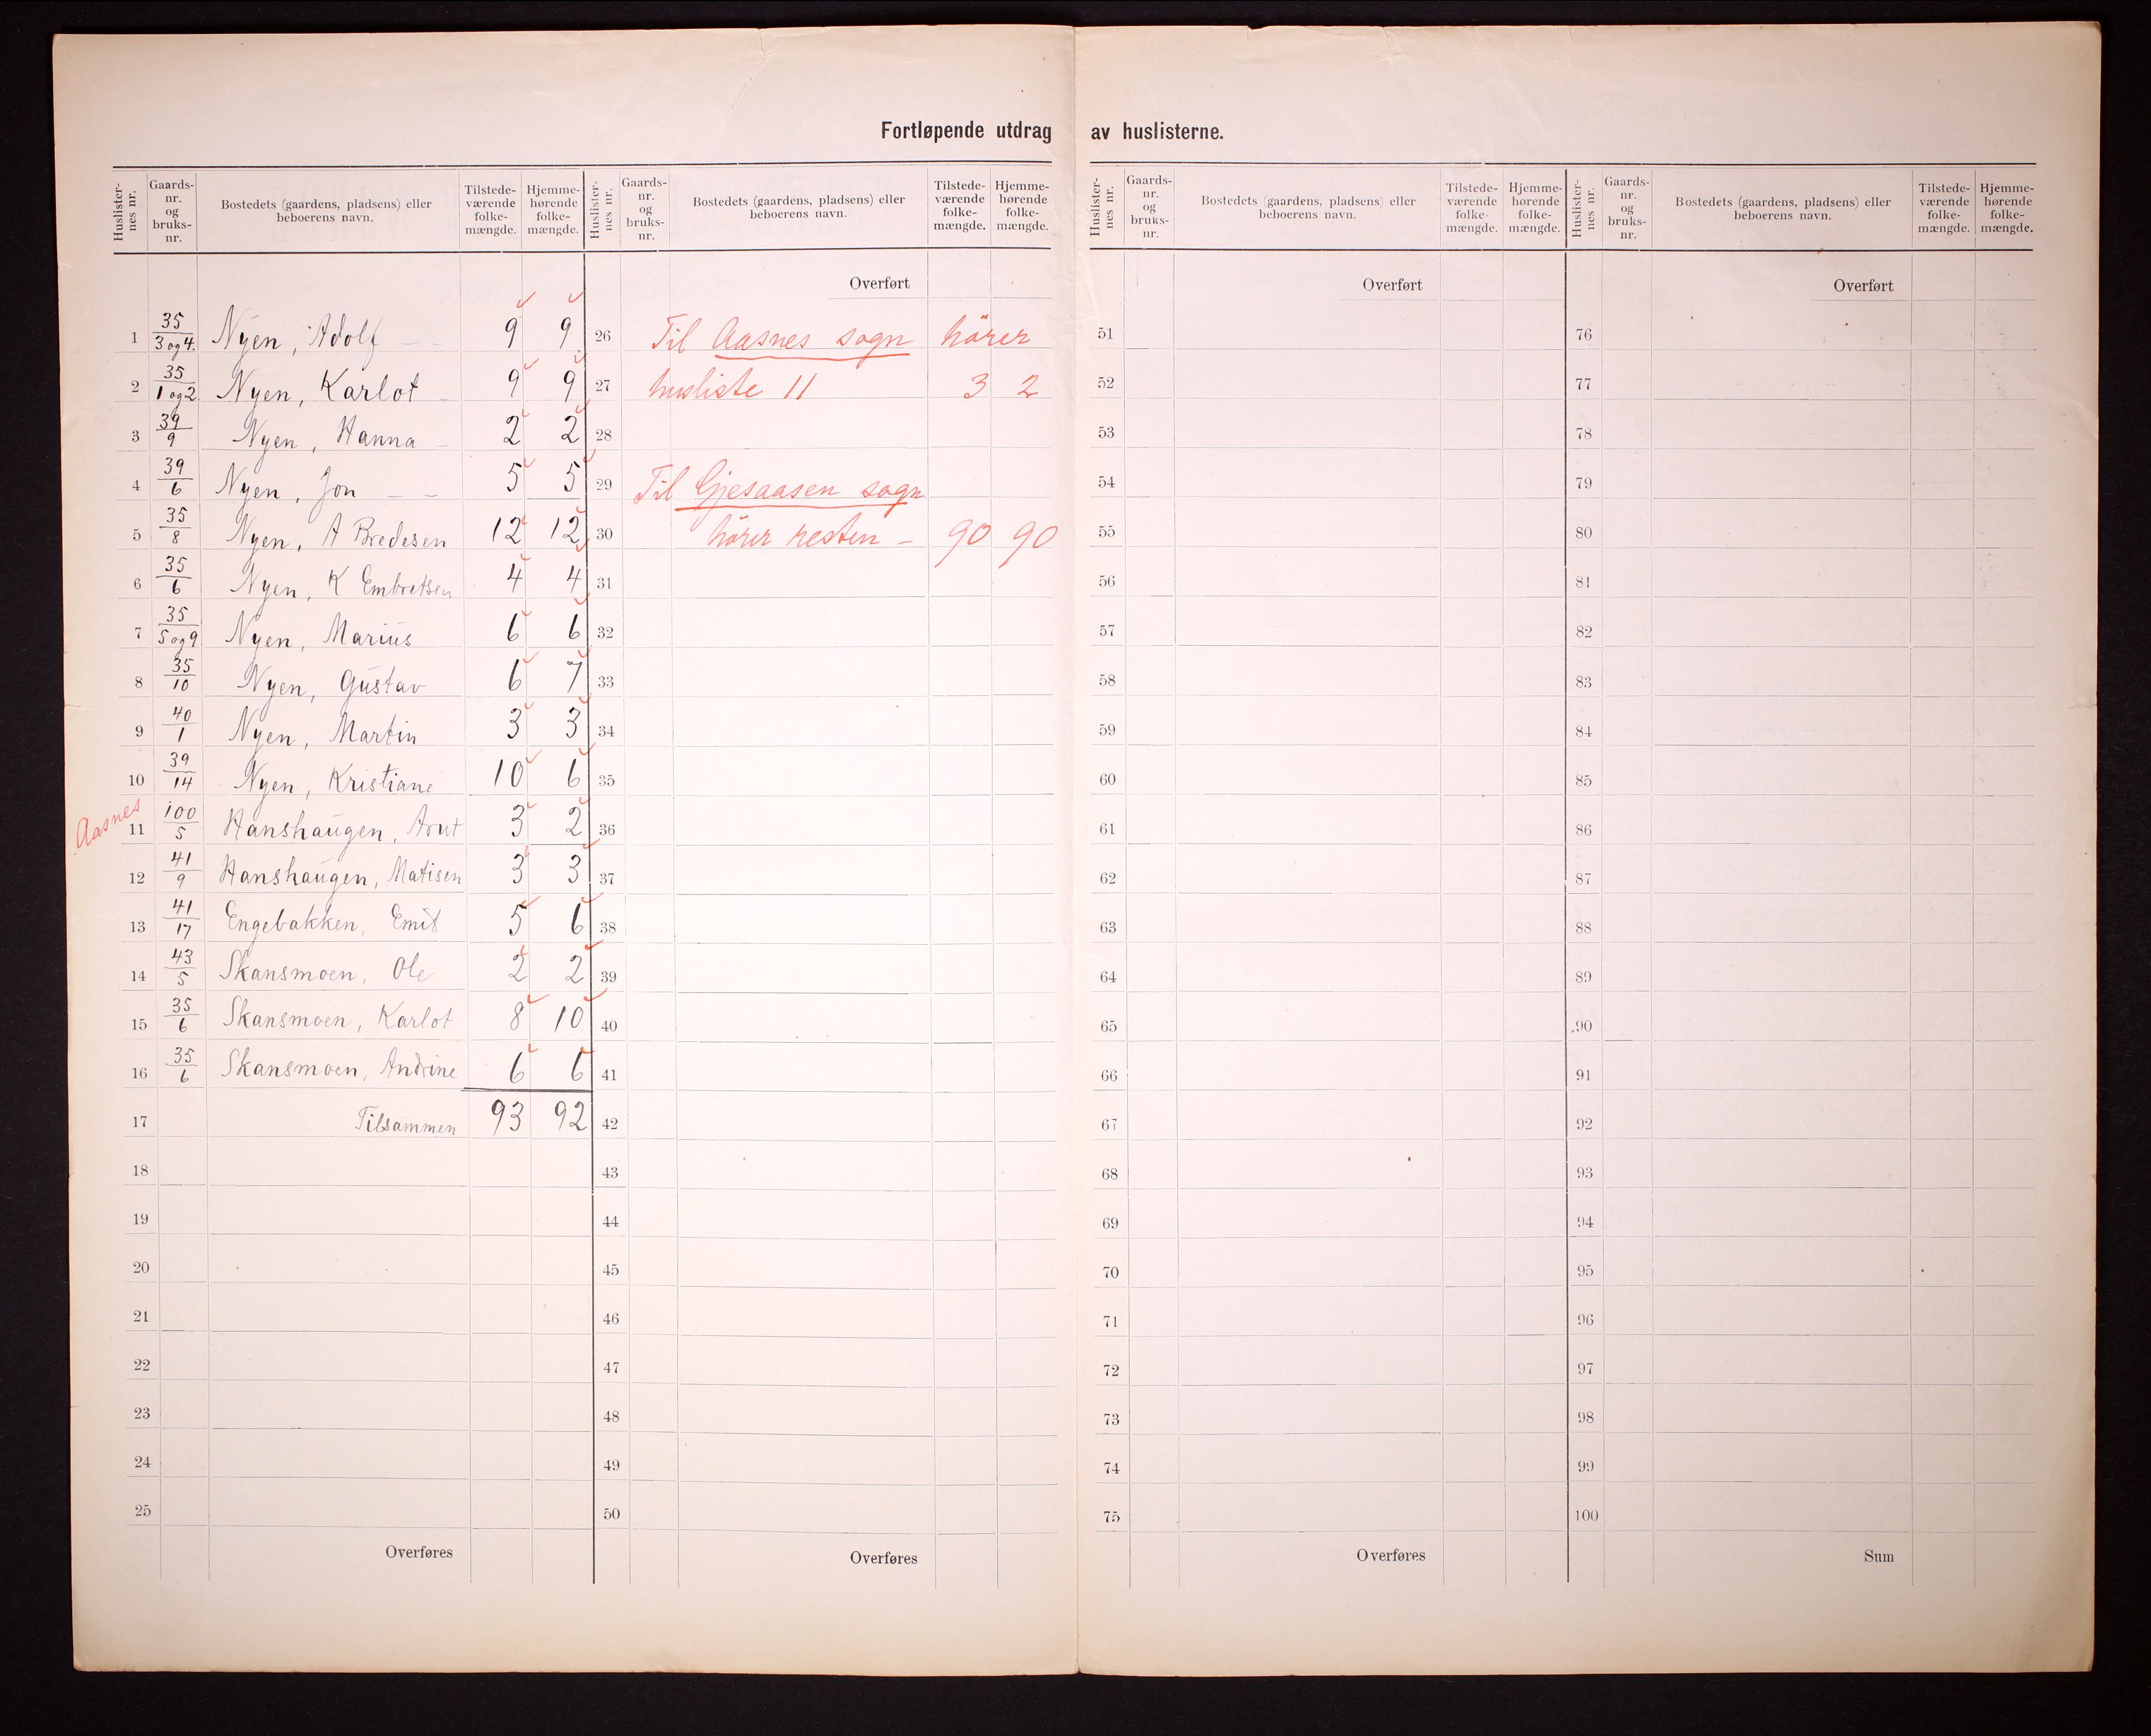 Fortløpende utdrag av huslisterne.
Huslisternes nr. Gaards-nr. og bruks-nr. Bostedets (gaardens, pladsens) eller beboerens navn. Tilstede-værende folke-mængde. Hjemme-hørende folke-mængde.
1 35/3 og 4. Nyen, Adolf 9 9
2 35/1 og 2 Nyen, Karlot 9 9
3 39/9 Nyen, Hanna 2 2
4 39/6 Nyen, Jon 5 5
5 35/8 Nyen, A Bredesen 12 12
6 35/6 Nyen, K Embretsen 4 4
7 35/5 og 9 Nyen, Marius 6 6
8 35/10 Nyen, Gustav 6 7
9 40/1 Nyen, Martin 3 3
10 39/14 Nyen, Kristiane 10 6
Aasnes
11 100/5 Hanshaugen, Arnt 3 2
12 41/9 Hanshaugen, Matisen 3 3
13 41/17 Engebakken, Emil 5 6
14 43/5 Skansmoen, Ole 2 2
15 35/6 Skansmoen, Karlot 8 10
16 35/6 Skansmoen, Andrine 6 6
17 Tilsammen 93 92
18
19
20
21
22
23
24
25
Overføres
Huslisternes nr. Gaards-nr. og bruks-nr. Bostedets (gaardens, pladsens) eller beboerens navn. Tilstede-værende folke-mængde. Hjemme-hørende folke-mængde.
Overført
26 Til Aasnes sogn hører
27 husliste 11 3 2
28
29 Til Gjesaasen sogn
30 hører resten - 90 90
31
32
33
34
35
36
37
38
39
40
41
42
43
44
45
46
47
48
49
50
Overføres
Huslisternes nr. Gaards-nr. og bruks-nr. Bostedets (gaardens, pladsens) eller beboerens navn. Tilstede-værende folke-mængde. Hjemme-hørende folke-mængde.
Overført
51
52
53
54
55
56
57
58
59
60
61
62
63
64
65
66
67
68
69
70
71
72
73
74
75
Overføres
Huslisternes nr. Gaards-nr. og bruks-nr. Bostedets (gaardens, pladsens) eller beboerens navn. Tilstede-værende folke-mængde. Hjemme-hørende folke-mængde.
Overført
76
77
78
79
80
81
82
83
84
85
86
87
88
89
90
91
92
93
94
95
96
97
98
99
100
Sum